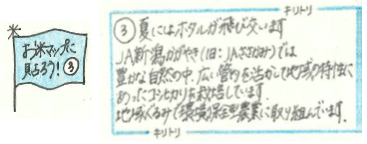 お米マップに
貼ろう！③
キリトリ
③ 夏にはホタルが飛び交います
JA新潟かがやき(旧：JAささかみ)では
豊かな自然の中、広い管内を活かして地域の特性に
あったコシヒカリを栽培しています。
地域ぐるみで環境保全型農業に取り組んでいます。
キリトリ